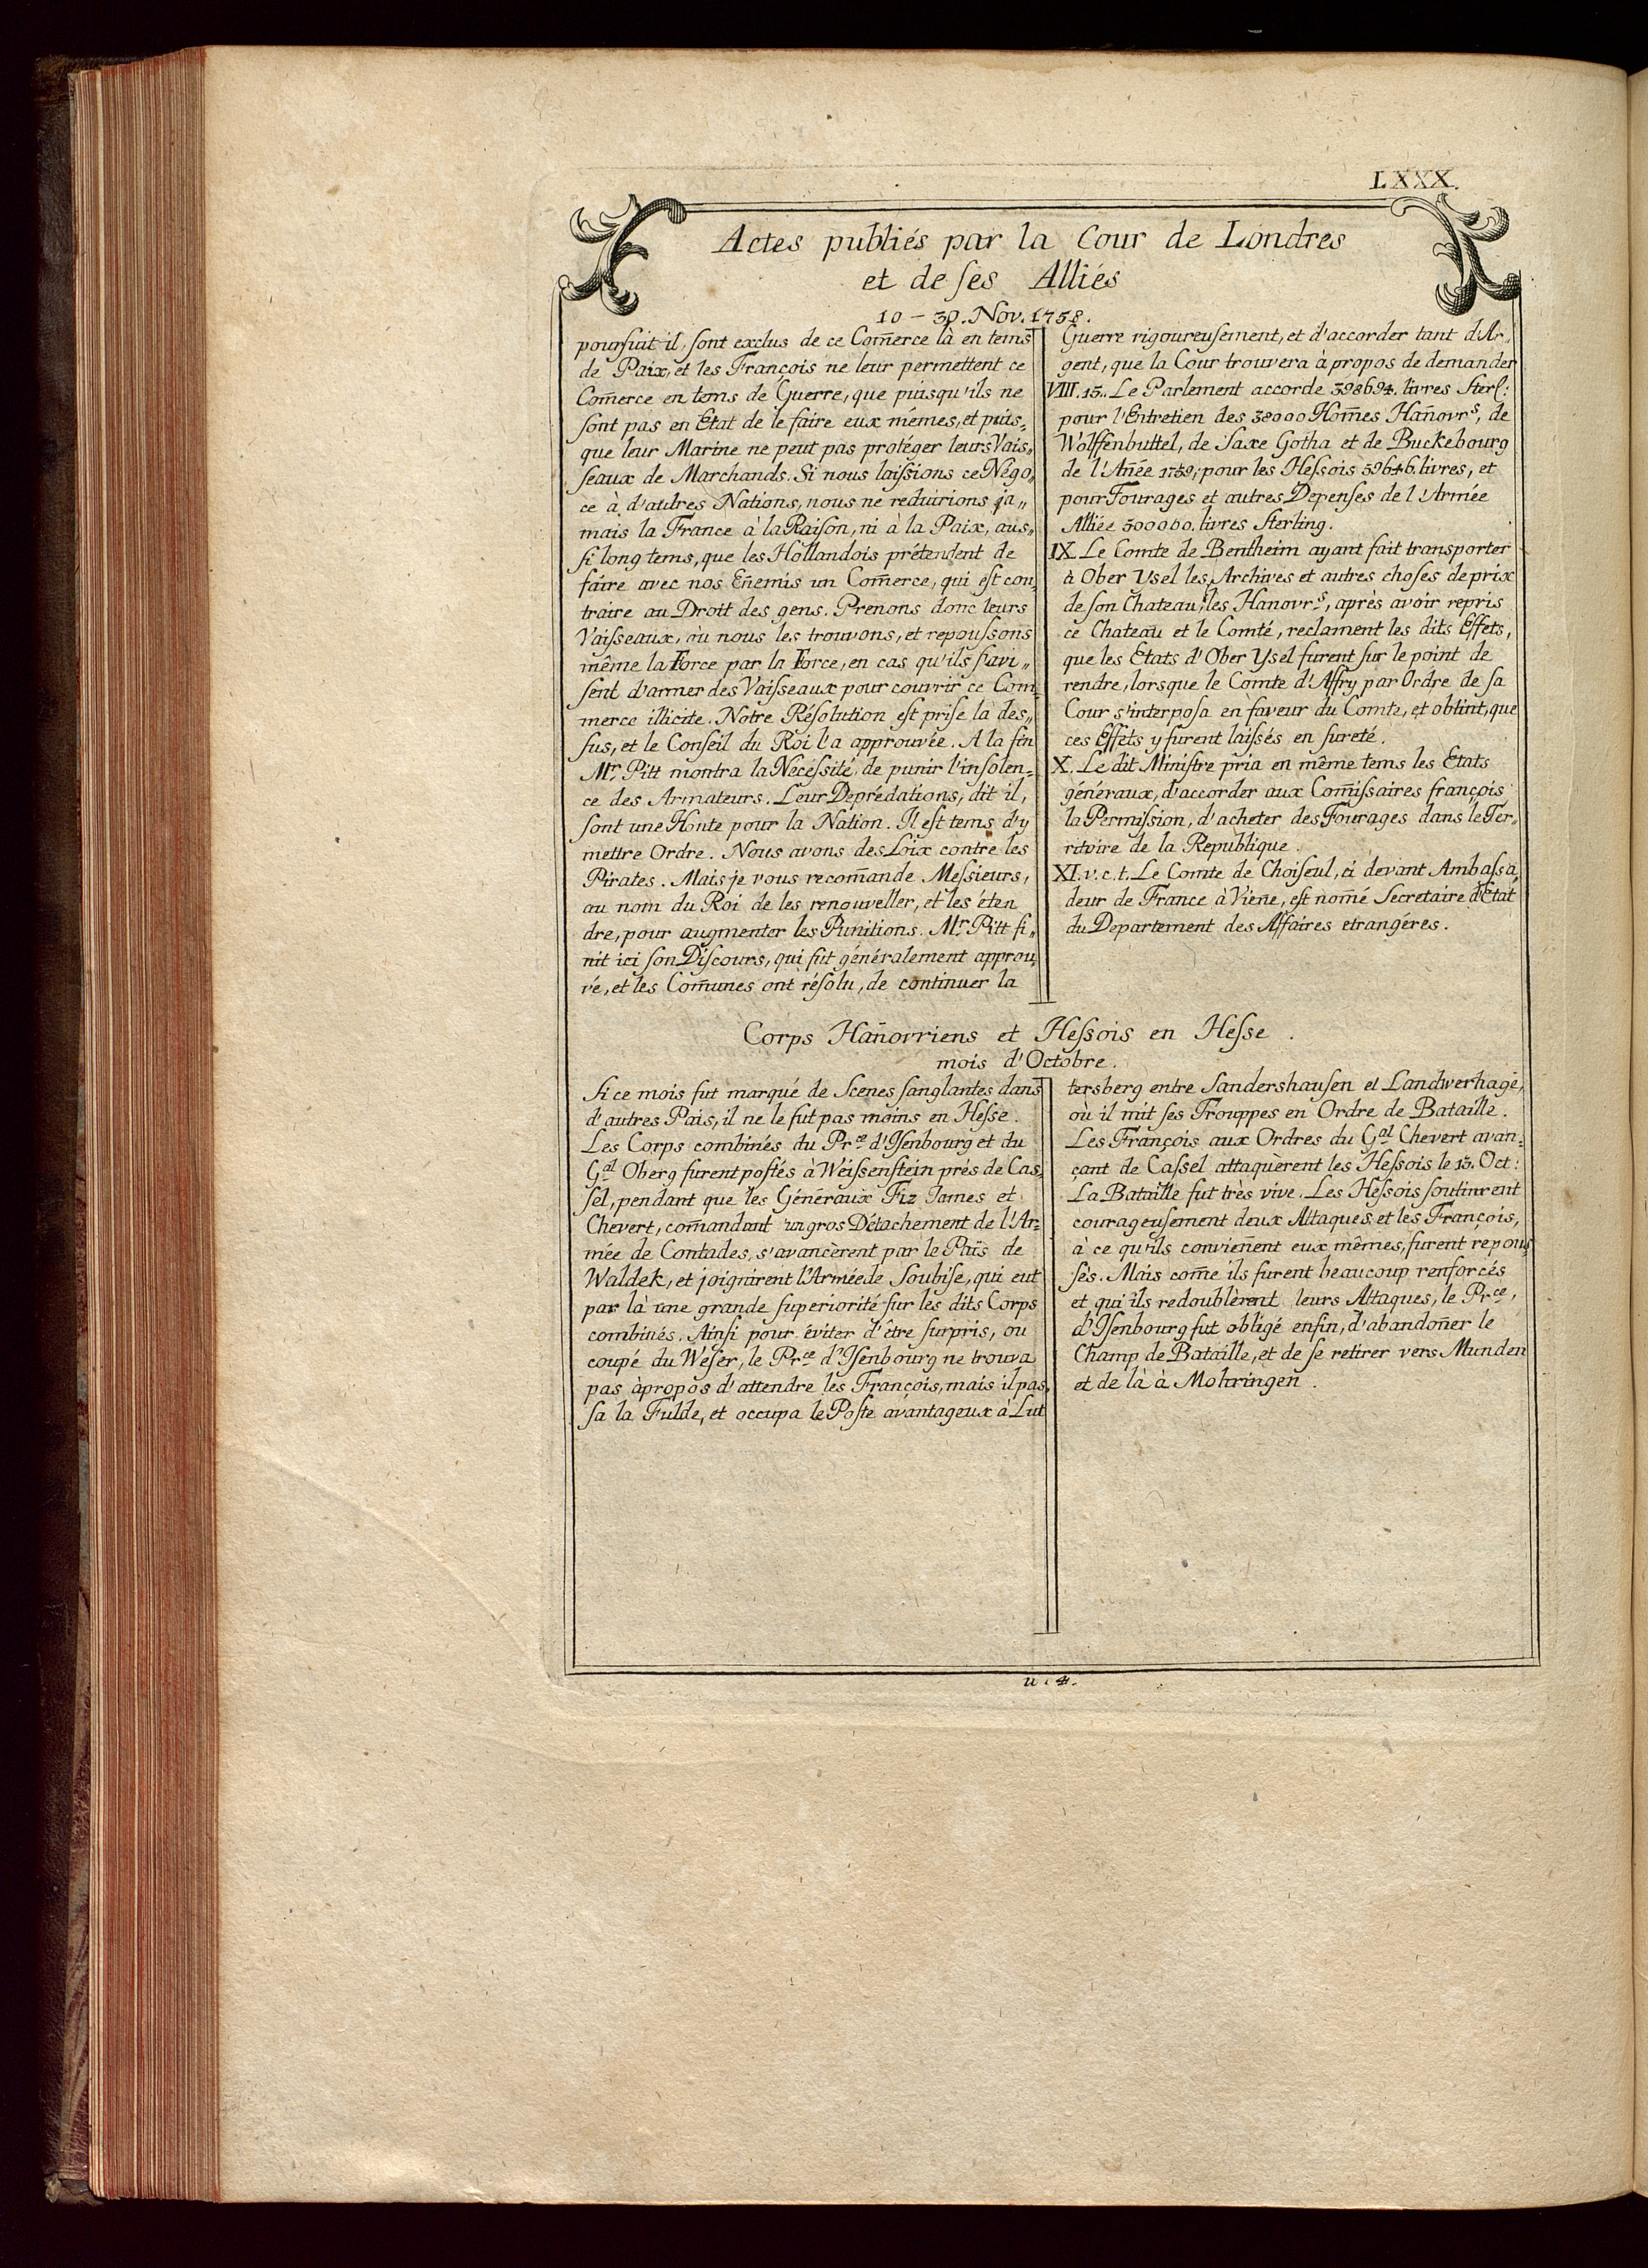 LXXX.
Actes publiés par la Cour de Londres
et de ſes Alliés
10 – 30. Nov. 1758.
pourſuit-il, ſont exclus de ce Com̄erce là en tems
de Paix, et les François ne leur permettent ce
Com̄erce en tems de Guerre, que puisqu'ils ne
ſont pas en Etat de le faire eux mémes, et puis„
que leur Marine ne peut pas protéger leurs Vais„
ſeaux de Marchands. Si nous laiſsions ce Négo„
ce à d'autres Nations, nous ne reduirions ja„
mais la France à la Raiſon, ni à la Paix, aus„
ſi long tems, que les Hollandois prétendent de
faire avec nos En̄emis un Com̄erce, qui eſt con„
traire au Droit des gens. Prenons donc leurs
Vaiſseaux, où nous les trouvons, et repouſsons
même la Force par la Force, en cas qu'ils ſ'avi„
ſent d'armer des Vaiſseaux pour couvrir ce Com„
merce illicite. Notre Réſolution eſt priſe là des„
ſus, et le Conſeil du Roi l'a approuvée. A la fin
Mr. Pitt montra la Neceſsité, de punir l'inſolen„
ce des Armateurs. Leur Deprédations, dit il,
ſont une Honte pour la Nation. Il eſt tems d'y
mettre Ordre. Nous avons des Loix contre les
Pirates. Mais je vous recom̄ande Meſsieurs,
au nom du Roi de les renouveller, et les éten
dre, pour augmenter les Punitions. Mr. Pitt fi„
nit ici ſon Diſcours, qui fut généralement approu„
vé, et les Com̄unes ont réſolu, de continuer la
Guerre rigoureuſement, et d'accorder tant d'Ar„
gent, que la Cour trouvera à propos de demander
VIII. 13. Le Parlement accorde 398694. livres Sterl:
pour l'Entretien des 38000 Hom̄es Han̄ovrs, de
Wolffenbuttel, de Saxe Gotha et de Buckebourg
de l'An̄ée 1759; pour les Heſsois 59646. livres, et
pour Fourages et autres Depenſes de l'Armée
Alliée 500000. livres Sterling.
IX. Le Comte de Bentheim ayant fait transporter
à Ober Ysel les Archives et autres choſes de prix
de ſon Chateau, les Hanovrs, après avoir repris
ce Chateau et le Comté, reclament les dits Effets,
que les Etats d'Ober Ysel furent ſur le point de
rendre, lorsque le Comte d'Affry par Ordre de ſa
Cour s'interpoſa en faveur du Comte, et obtint, que
ces Effets y furent laiſsés en ſureté.
X. Le dit Miniſtre pria en même tems les Etats
généraux, d'accorder aux Com̄iſsaires françois
la Permiſsion, d'acheter des Fourages dans le Ter„
ritoire de la Republique.
XI. v. c. t. Le Comte de Choiſeul, ci devant Ambaſsa„
deur de France à Vien̄e, eſt nom̄é Secretaire d'Etat
du Departement des Affaires etrangéres.
Corps Han̄ovriens et Heſsois en Heſse.
mois d'Octobre.
Si ce mois fut marqué de Scenes ſanglantes dans
d'autres Pais, il ne le fut pas moins en Heſse.
Les Corps combinés du Prce d'Iſenbourg et du
Gal Oberg furent poſtés à Weiſsenſtein prés de Cas„
ſel, pendant que les Généraux Fiz James et
Chevert, com̄andant un gros Détachement de l'Ar„
mée de Contades, s'avancèrent par le Païs de
Waldek, et joignirent l'Armée de Soubiſe, qui eut
par là une grande ſuperiorité ſur les dits Corps
combinés. Ainſi pour éviter d'être ſurpris, ou
coupé du Weſer, le Prce d'Iſenbourg ne trouva
pas à propos d'attendre les François, mais il pas„
ſa la Fulde, et occupa le Poſte avantageux à Lut
tersberg entre Sandershauſen et Landwerhage,
où il mit ſes Trouppes en Ordre de Bataille.
Les François aux Ordres du Gal Chevert avan„
çant de Caſsel attaquèrent les Heſsois le 15. Oct:
La Bataille fut très vive. Les Heſsois ſoutinrent
courageuſement deux Attaques, et les François,
à ce qu'ils convien̄ent eux mêmes, furent repouſ
ſés. Mais com̄e ils furent beaucoup renforcés
et qui ils redoublèrent leurs Attaques, le Prce,
d'Iſenbourg fut obligé enfin, d'abandon̄er le
Champ de Bataille, et de ſe retirer vers Munden
et de là à Mohringen.
u. 4.